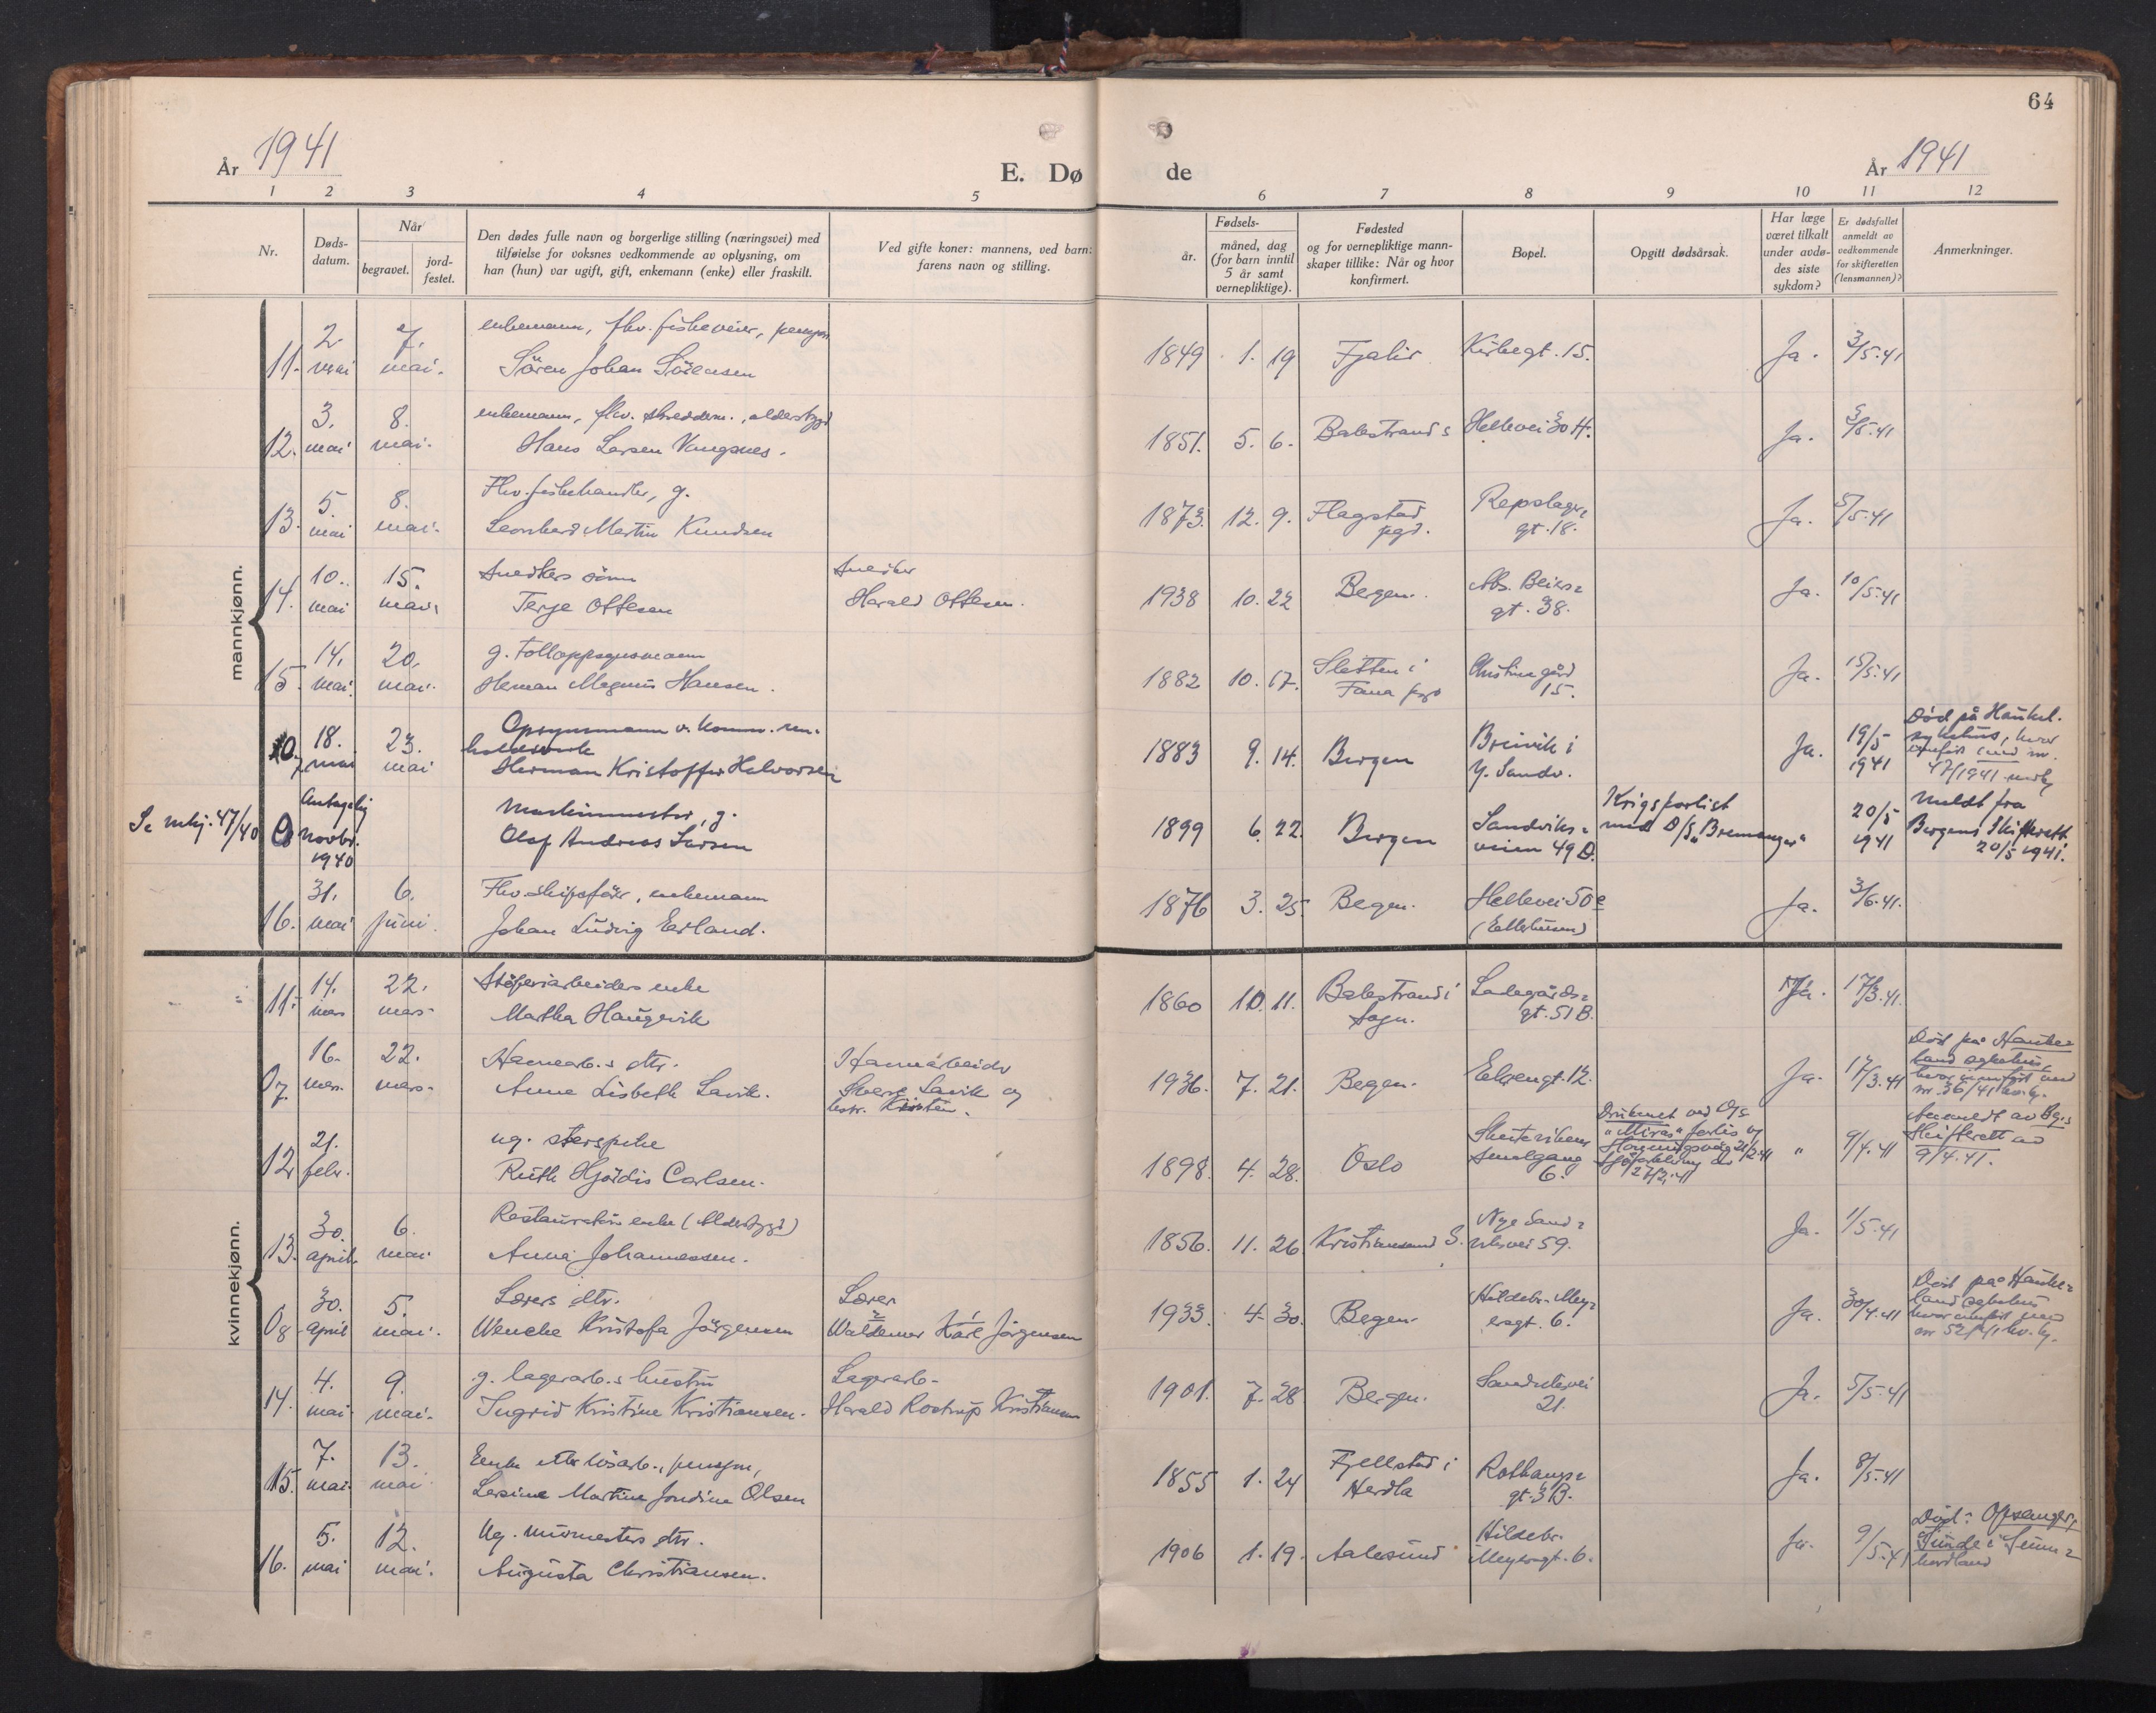 64
År 1941
E. Dø
de
År 1941
1 2 3 4 5
6 7 8 9 10 11 12
Nr.
Døds-
datum.
Når
begravet.
jord-
festet.
Den dødes fulle navn og borgerlige stilling (næringsvei) med
tilføielse for voksnes vedkommende av oplysning, om
han (hun) var ugift, gift, enkemann (enke) eller fraskilt.
Ved gifte koner: mannens, ved barn:
farens navn og stilling.
Fødsels-
år.
måned, dag
(for barn inntil
5 år samt
vernepliktige).
Fødested
og for vernepliktige mann-
skaper tillike: Når og hvor
konfirmert.
Bopel.
Opgitt dødsårsak.
Har læge
været tilkalt
under avdø-
des siste
sykdom?
Er dødsfallet
anmeldt av
vedkommende
for skifteretten
(lensmannen)?
Anmerkninger.
mannkjønn.
2 7. enkemann, fhv.
11. mai mai. Sören Johan Sörensen 1849 1. 19 Fjaler Kirkegt. 15. Ja. 3/5.41
3. 8. enkemann, fhv. skredderm., alderstygd
12. mai mai. Hans Larsen Vangsnes. 1851. 5. 6. Balestrand Hellevei 30 H. Ja. 3/5.41
5. 8. Fhv. fiskehandler, g.
13. mai mai. Leonhard Martin Knudsen 1873. 12. 9. Flagstad pgd. Repslager-
gt. 18. Ja. 5/5.41
10. 15. Snedkers sönn Snedker
14. mai mai. Terje Ottesen Harald Ottesen. 1938 10. 22 Bergen. Abs. Beiers-
gt. 38. Ja. 10/5.41
14. 20. g. Tolloppsynsmann
15. mai. mai. Herman Magnus Hansen. 1882 10. 17. Sletten i
Fana Christinegård
15. Ja. 15/5.41
18. 23. Opsynsmann v. komm. ren-
holdsverk
0 7 mai mai Herman Kristoffer Halvorsen 1883 9. 14. Bergen Breivik i
Y. Sandv. Ja. 19/5
1941 Död på Haukel.
sykehus, hvor
innfört med nr.
47/1941 mkj.
Se mkj. 47/40 0 8 Antagelig
Novbr.
1940 Maskinmester, g.
Olaf Andreas Larsen 1899 6. 22. Bergen Sandviks-
veien 49 D. Krigsforlist
med D/S „Bremanger" 20/5
1941 Meldt fra
Bergens Skifterett
20/5 1941.
31. 6. Fhv. skipsförer, enkemann
16. mai juni. Johan Ludvig Erland. 1876 3. 25 Bergen. Hellevei 50 e Ja. 3/6.41.
kvinnekjønn.
14. 22. Stöperiarbeiders enke
11. mars mars. Martha Haugsvik 1860 10. 11. Balestrand i
Sogn. Ladegårds-
gt. 51 B. Ja. 17/3.41.
16. 22. Havnearb.s dtr. Havnearbeider
0 7. mars. mars. Anne Lisbeth Lavik. Sverre Lavik og
hstr. Kirsten. 1936. 7. 21. Bergen. Ekrengt. 12. Ja. 17/3.41 Död på Hauke-
land sykehus
hvor innfört med
nr. 36/41 kv.kj.
21. ug.
12. febr. Ruth Hjördis Carlsen. 1898. 4. 28. Oslo Skutevikens
Smalgang
6. Druknet ved D/S
„Mira's" forlis
Honningsvåg
27/2.41 " 9/4.41 Anmeldt av Bgs
Skifterett
9/4.41.
30. 6. Restauratörs enke (Alderstygd)
13. april mai Anna Johannessen. 1856. 11. 26. Kristiansand S. Nye Sand-
viksvei 59. Ja. 1/5.41
30. 5. Lærers dtr. Lærer
0 8 april mai. Wenche Kristofa Jörgensen Waldemar Karl Jörgensen 1933. 4. 30. Bergen. Hildebr. Mey-
ersgt. 6. Ja. 30/4.41 Död på Hauke-
land sykehus
hvor innfört med
nr 52/41 kv.kj.
4. 9. g. lagerarb.s hustru Lagerarb.
14. mai mai. Ingrid Kristine Kristiansen. Harald Rostrup Kristiansen 1901. 7. 28 Bergen. Sandviksvei
21. Ja. 5/5.41
7. 13. Enke etter lösarb.,
15. mai. mai Larsine Martine Jondine Olsen 1855 1. 24 Fjellstad i
Herdla Rothaugs-
gt. 3 B. Ja. 8/5.41
5. 12. Ug. murmesters dtr.
16. mai mai. Augusta Christiansen. 1906 1. 19. Aalesund Hildebr.
Meyersgt. 6. Ja. 9/5.41 Död: Opsanger,
Sunde i Sunn-
hordland